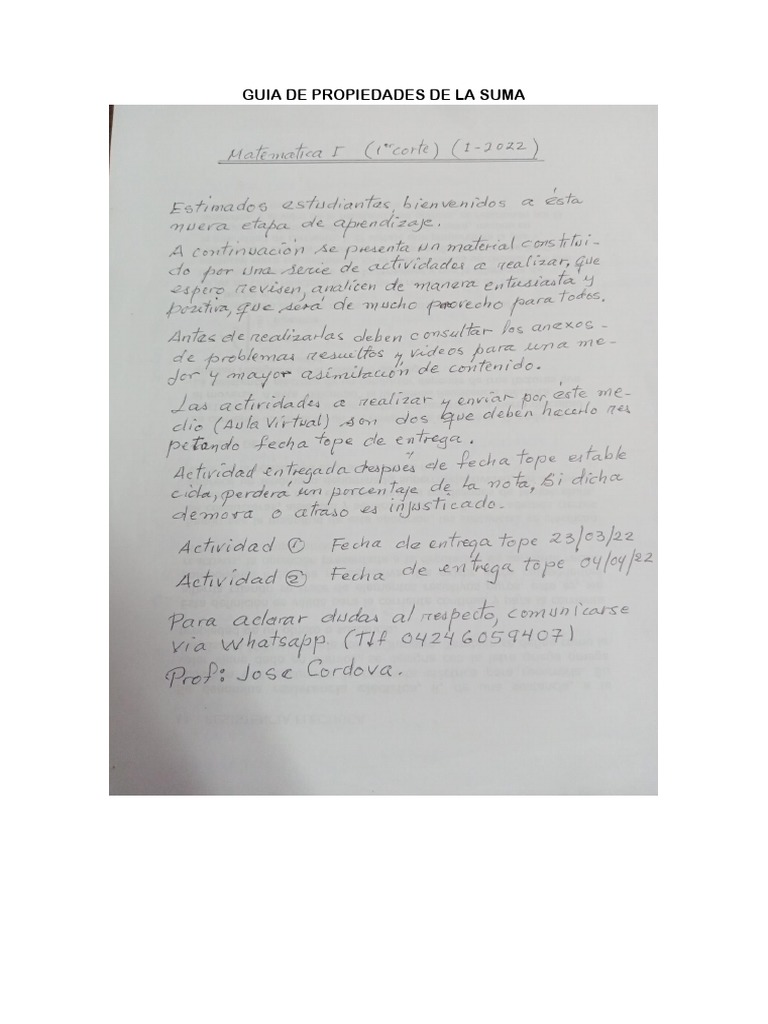 GUIA DE PROPIEDADES DE LA SUMA
Matematica I (1er corte) (I-2022)
Estimados estudiantes, bienvenidos a ésta
nueva etapa de aprendizaje.
A continuación se presenta un material constitui-
do por una serie de actividades a realizar, que
espero revisen, analicen de manera entusiasta y
positiva, que será de mucho provecho para todos.
Antes de realizarlas deben consultar los anexos
de problemas resueltos y videos para una me-
jor y mayor asimilación de contenido.
Las actividades a realizar y enviar por éste me-
dio (Aula Virtual) son dos que deben hacerlo res
petando fecha tope de entrega.
Actividad entregada después de fecha tope estable
cida, perderá un porcentaje de la nota, si dicha
demora o atraso es injusticado.
Actividad 1 Fecha de entrega tope 23/03/22
Actividad 2 Fecha de entrega tope 04/04/22
Para aclarar dudas al respecto, comunicarse
via Whatsapp. (Tlf 04246059407)
Prof: Jose Cordova.